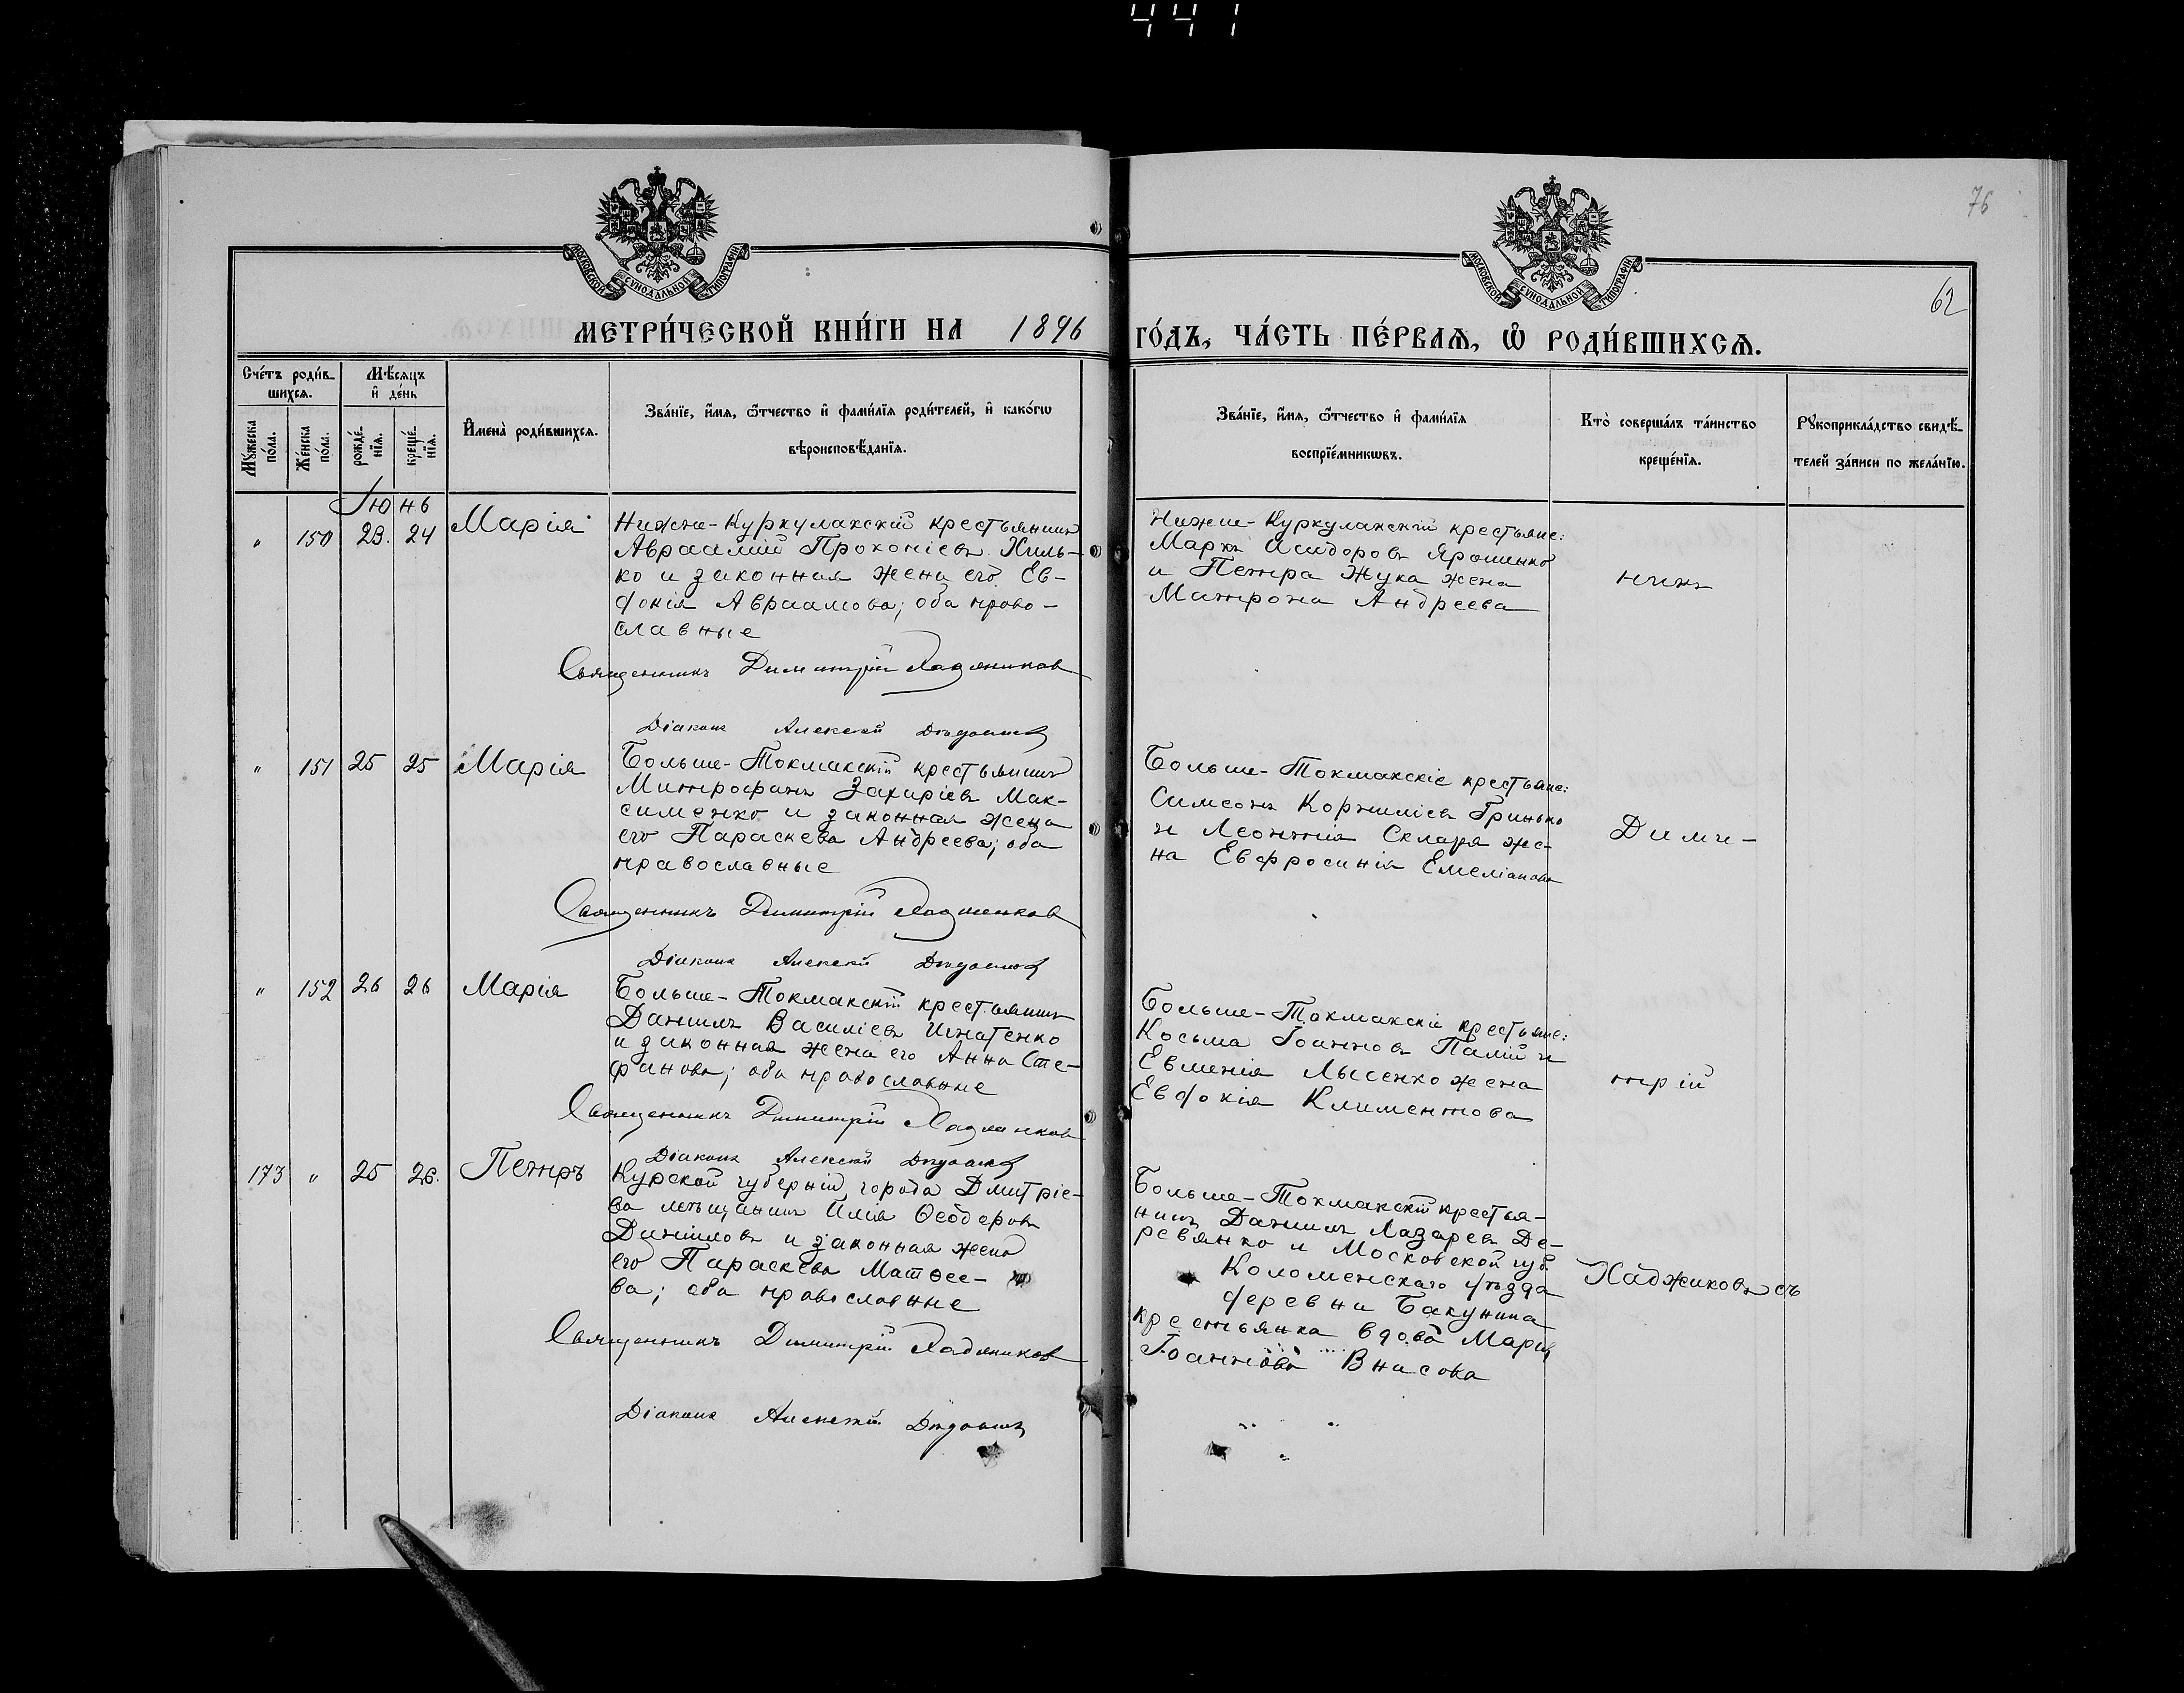 441
76
62
МОСКОВСКОЙ СѴНОДАЛЬНОЙ ТИПОГРАФІИ
МОСКОВСКОЙ СѴНОДАЛЬНОЙ ТИПОГРАФІИ
МЕТРИ́ЧЕСКОЙ КНИ́ГИ НА 1896 ГО́ДЪ, ЧА́СТЬ ПЕ́РВАѦ, Ѡ҆ РОДИ́ВШИХСѦ.
Сче́тъ роди́в-
шихсѧ.
Мꙋ́жеска по́ла.
Же́нска по́ла.
Мѣ́сѧцъ
и҆ де́нь
рожде́-
нїѧ.
креще́-
нїѧ.
И҆мена̀ роди́вшихсѧ.
Зва́нїе, и҆́мѧ, ѻ҆́тчество и҆ фами́лїѧ роди́телей, и҆ како́гѡ
вѣроисповѣ́данїѧ.
Зва́нїе, и҆́мѧ, ѻ҆́тчество и҆ фами́лїѧ
воспрїе́мникѡвъ.
Кто̀ соверша́лъ та́инство
креще́нїѧ.
Рꙋкоприкла́дство свидѣ́-
телей за́писи по жела́нїю.
Іюнь
" 150 23. 24 Марія
Нижне-Куркулакскій крестьянинъ
Авраамій Прокопіевъ Хиль-
ко и законная жена его Ев-
докія Авраамова; оба право-
славные
Священникъ Димитрій
Діаконъ Алексій
Нижне-Куркулакскіи крестьяне:
Маркъ Исидоровъ Ярошенко
и Петра Жука жена
Матрона Андреева
" 151 25 25 Марія
Больше-Токмакскій крестьянинъ
Митрофанъ Захаріевъ Мак-
сименко и законная жена
его Параскева Андреева; оба
православные
Священникъ Димитрій
Діаконъ Алексій
Больше-Токмакскіе крестьяне:
Симеонъ Корниліевъ Гринько
и Леонтія Скляра же-
на Евфросинія Емеліанова
Дими-
" 152 26 26 Марія
Больше-Токмакскій крестьянинъ
Даниилъ Василіевъ Игнатенко
и законная жена его Анна Сте-
фанова; оба православные
Священникъ Димитрій
Діаконъ Алексій
Больше-Токмакскіе крестьяне:
Косьма Іоанновъ Палій и
Евменія Лысенко жена
Евдокія Климентова
трій
173 " 25 26. Петръ
Курской губерніи, города Дмитріе-
ва мѣщанинъ Илія Ѳеодоровъ
Даніиловъ и законная жена
его Параскева Матѳее-
ва; оба православные
Священникъ Димитрій
Діаконъ Алексій
Больше-Токмакскій крестья-
нинъ Даниилъ Лазаревъ Де-
ревянко и Московской губ.
Коломенскаго уѣзда
деревни Бакунина
крестьянка вдова Марія
Іоаннова